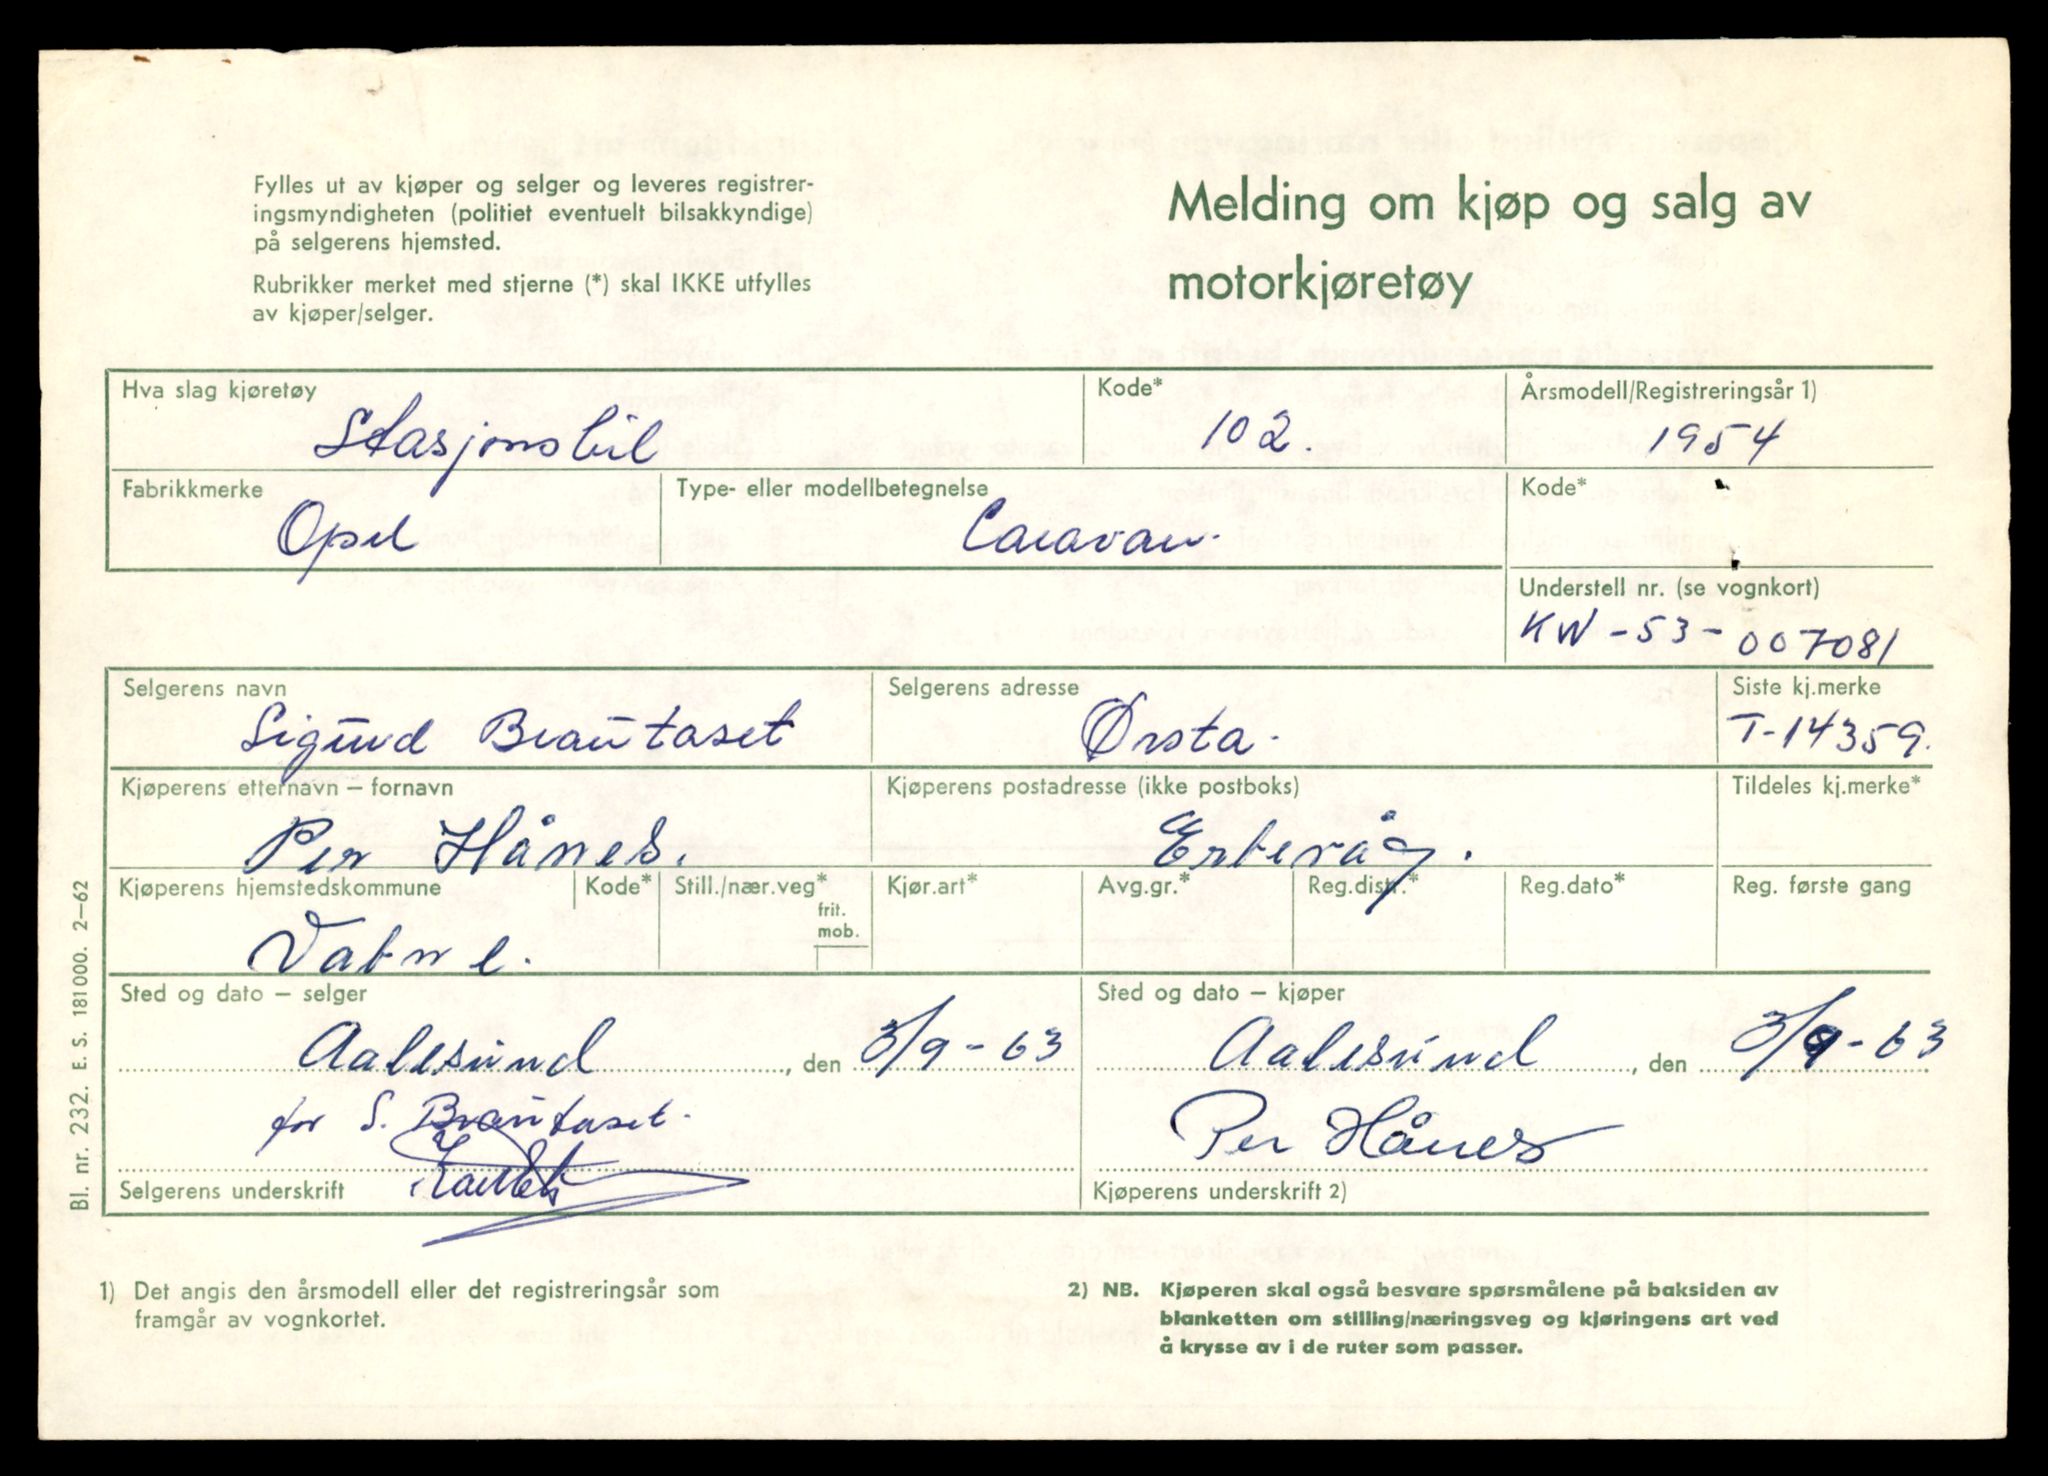 Fylles ut av kjøper og selger og leveres registrer-
ingsmyndigheten (politiet eventuelt bilsakkyndige)
på selgerens hjemsted.
Rubrikker merket med stjerne (*) skal IKKE utfylles
av kjøper/selger.
Melding om kjøp og salg av
motorkjøretøy
Hva slag kjøretøy
Stasjonsbil
Kode*
102.
Årsmodell/Registreringsår 1)
1954
Fabrikkmerke
Opel
Type- eller modellbetegnelse
Caravan.
Kode*
Understell nr. (se vognkort)
KW-53-007081
Selgerens navn
Sigund Brautaset
Selgerens adresse
Ørsta.
Siste kj.merke
T-14359.
Kjøperens etternavn – fornavn
Per Hånes.
Kjøperens postadresse (ikke postboks)
Etervåg.
Tildeles kj.merke*
Kjøperens hjemstedskommune
Vatne.
Kode*
Still./nær.veg*
frit.
mob.
Kjør.art*
Avg.gr.*
Reg.distr.*
Reg.dato*
Reg. første gang
Sted og dato – selger
Aalesund, den 3/9-63
Sted og dato – kjøper
Aalesund, den 3/9-63
for S. Brautaset.
Selgerens underskrift
Per Hånes
Kjøperens underskrift 2)
1) Det angis den årsmodell eller det registreringsår som
framgår av vognkortet.
2) NB. Kjøperen skal også besvare spørsmålene på baksiden av
blanketten om stilling/næringsveg og kjøringens art ved
å krysse av i de ruter som passer.
Bl. nr. 232. E. S. 181000. 2–62